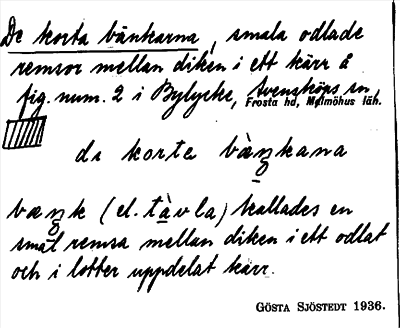 De korta bänkarna, smala odlade
remsor mellan diken i ett kärr å
fig. num. 2 i Bylycke, Svensköps sn,
Frosta hd, Malmöhus län.
de korte bàŋkana
bæŋk (el. tàvla) kallades en
smal remsa mellan diken i ett odlat
och i lotter uppdelat kärr.
GÖSTA SJÖSTEDT 1936.